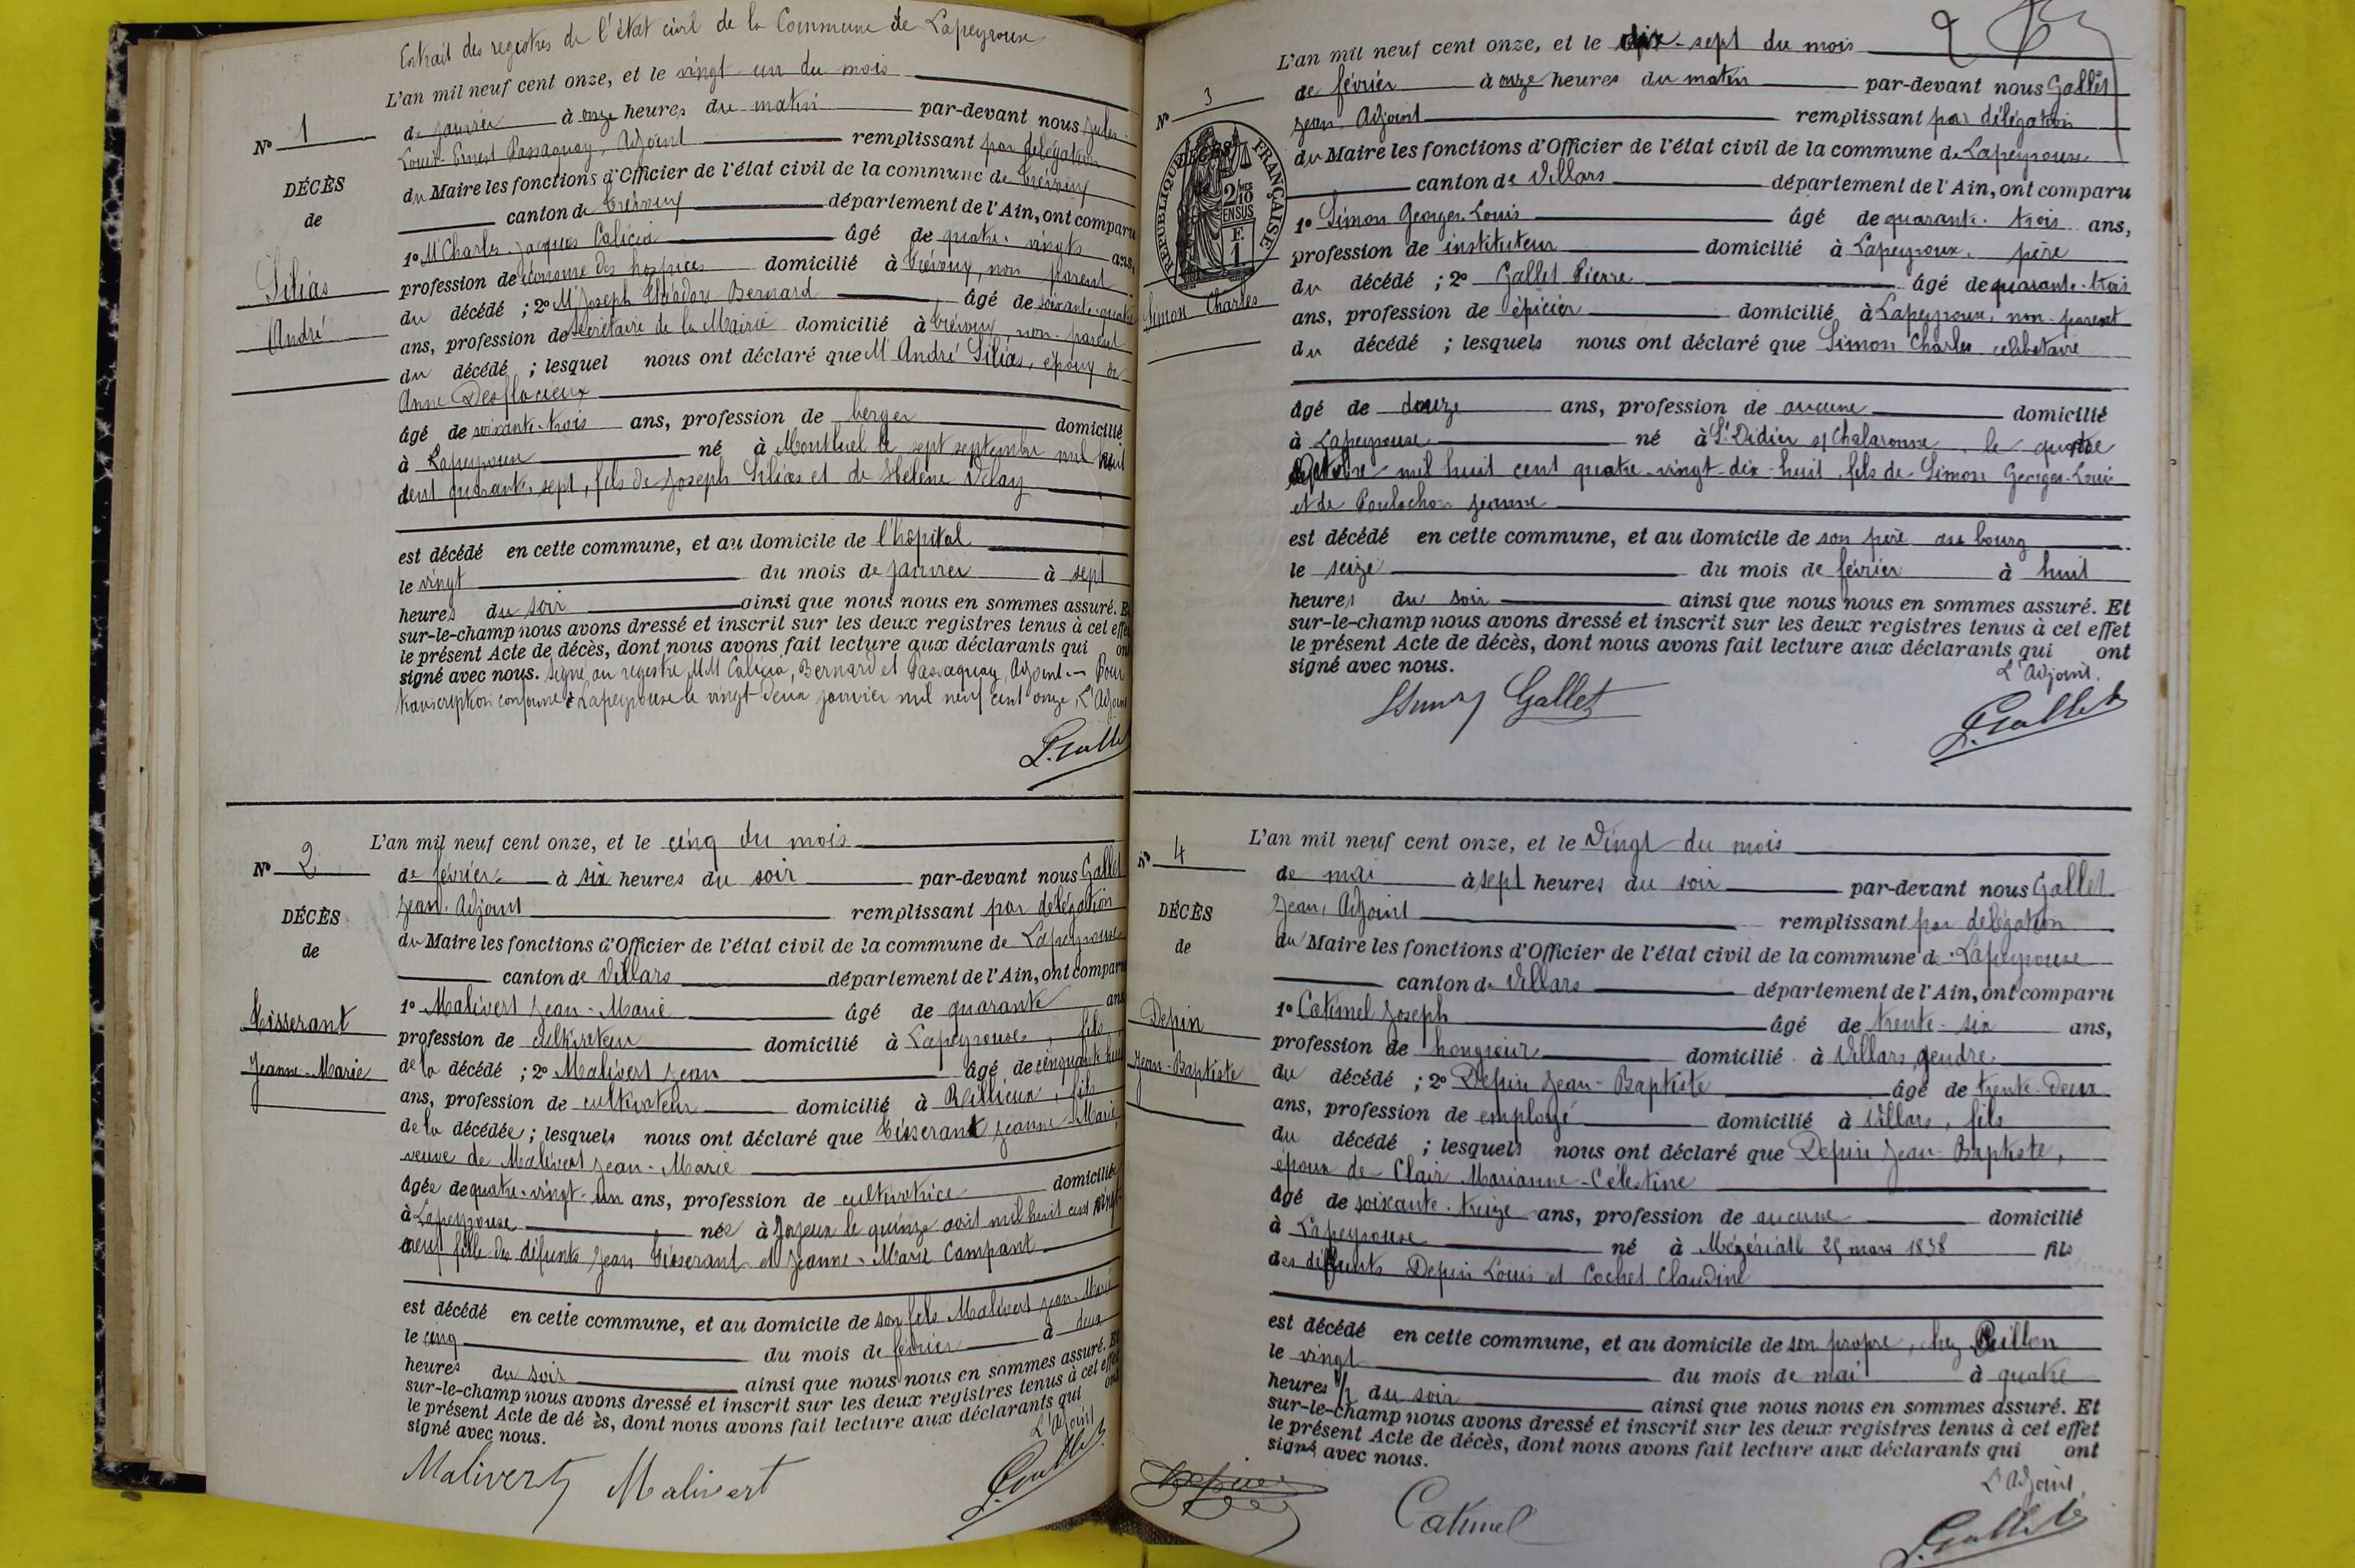 Extrait des registres de l'état civil de la Commune de Lapeyrouse
L'an mil neuf cent onze, et le vingt un du mois
de janvier à onze heures du matin par-devant nous Jules
Louis-Ernest Passaquay, Adjoint remplissant par délégation
du Maire les fonctions d'Officier de l'état civil de la commune de Trévoux
canton de Trévoux département de l'Ain, ont comparu
1º M Charles-Jacques Calicia âgé de quatre-vingts ans,
profession de économe des hospices domicilié à Trévoux, non parent
du décédé ; 2º M Joseph Théodore Bernard, âgé de soixante-quatre
ans, profession de secrétaire de la Mairie domicilié à Trévoux non-parent
du décédé ; lesquel nous ont déclaré que M André Silias, époux de
Anne
âgé de soixante-trois ans, profession de berger domicilié
à Lapeyrouse né à Montluel le sept septembre mil huit
cent quarante sept, fils de Joseph Silias et de Hélène Velay
est décédé en cette commune, et au domicile de l'hôpital
le vingt du mois de janvier à sept
heures du soir ainsi que nous nous en sommes assuré. Et
sur-le-champ nous avons dressé et inscrit sur les deux registres tenus à cet effet
le présent Acte de décès, dont nous avons fait lecture aux déclarants qui ont
signé avec nous. Signé au registre MM Calicia, Bernard et Passaquay, Adjoint. - Pour
transcription conforme à Lapeyrouse le vingt-deux janvier mil neuf cent onze, L'Adjoint
Nº 1
DÉCÈS
de
Silias
André
L'an mil neuf cent onze, et le cinq du mois
de février à six heures du soir par-devant nous Gallet
Jean, Adjoint remplissant par délégation
du Maire les fonctions d'Officier de l'état civil de la commune de Lapeyrouse
canton de Villars département de l'Ain, ont comparu
1º Malivert Jean-Marie âgé de quarante ans
profession de cultivateur domicilié à Lapeyrouse, fils
de la décédé ; 2º Malivert Jean âgé de cinquante huit
ans, profession de cultivateur domicilié à Rillieux, fils
de la décédée ; lesquels nous ont déclaré que Tisserant Jeanne-Marie,
veuve de Malivert Jean-Marie
âgée de quatre-vingt-un ans, profession de cultivatrice domiciliée
à Lapeyrouse née à Joyeux le quinze avril mil huit cent vingt-
neuf fille des défunts Jean Tisserant et Jeanne-Marie Campant
est décédé en cette commune, et au domicile de son fils Malivert Jean-Marie
le cinq du mois de février à deux
heures du soir ainsi que nous nous en sommes assuré. Et
sur-le-champ nous avons dressé et inscrit sur les deux registres tenus à cet effet
le présent Acte de dé ès, dont nous avons fait lecture aux déclarants qui ont
signé avec nous.
L'Adjoint
Malivert Malivert
Gallet
Nº 2
DÉCÈS
de
Tisserant
Jeanne-Marie
2
L'an mil neuf cent onze, et le dix-sept du mois
de février à onze heures du matin par-devant nous Gallet
Jean Adjoint remplissant par délégation
du Maire les fonctions d'Officier de l'état civil de la commune de Lapeyrouse
canton de Villars département de l'Ain, ont comparu
1º Simon Georges-Louis âgé de quarante-trois ans,
profession de instituteur domicilié à Lapeyrouse, père
du décédé ; 2º Gallet Pierre âgé de quarante-trois
ans, profession de épicier domicilié à Lapeyrouse, non-parent
du décédé ; lesquels nous ont déclaré que Simon Charles célibataire
âgé de douze ans, profession de aucune domicilié
à Lapeyrouse né à St Didier s/ Chalaronne, le quatre
octobre mil huit cent quatre-vingt-dix-huit, fils de Simon Georges-Louis
et de Jeanne
est décédé en cette commune, et au domicile de son père au bourg
le seize du mois de février à huit
heures du soir ainsi que nous nous en sommes assuré. Et
sur-le-champ nous avons dressé et inscrit sur les deux registres tenus à cet effet
le présent Acte de décès, dont nous avons fait lecture aux déclarants qui ont
signé avec nous.
L'Adjoint.
Simon Gallet
Gallet
Nº 3
RÉPUBLIQUE FRANÇAISE
DÉCÈS
2/10 EN SUS
F.
1
Simon Charles
L'an mil neuf cent onze, et le Vingt du mois
de mai à sept heures du soir par-devant nous Gallet
Jean, Adjoint remplissant par délégation
du Maire les fonctions d'Officier de l'état civil de la commune de Lapeyrouse
canton de Villars département de l'Ain, ont comparu
1º Catimel Joseph âgé de trente-six ans,
profession de hongreur domicilié à Villars, gendre
du décédé ; 2º Depin Jean-Baptiste âgé de trente-deux
ans, profession de employé domicilié à Villars, fils
du décédé ; lesquels nous ont déclaré que Depin Jean-Baptiste,
époux de Clair Marianne-Célestine
âgé de soixante-treize ans, profession de aucune domicilié
à Lapeyrouse né à Mézériat le 25 mars 1838 fils
des défunts Depin Louis et Cochet Claudine
est décédé en cette commune, et au domicile de son propre, chez
le vingt du mois de mai à quatre
heures ½ du soir ainsi que nous nous en sommes assuré. Et
sur-le-champ nous avons dressé et inscrit sur les deux registres tenus à cet effet
le présent Acte de décès, dont nous avons fait lecture aux déclarants qui ont
signé avec nous.
L'Adjoint,
Depin
Catimel
Gallet
Nº 4
DÉCÈS
de
Depin
Jean-Baptiste